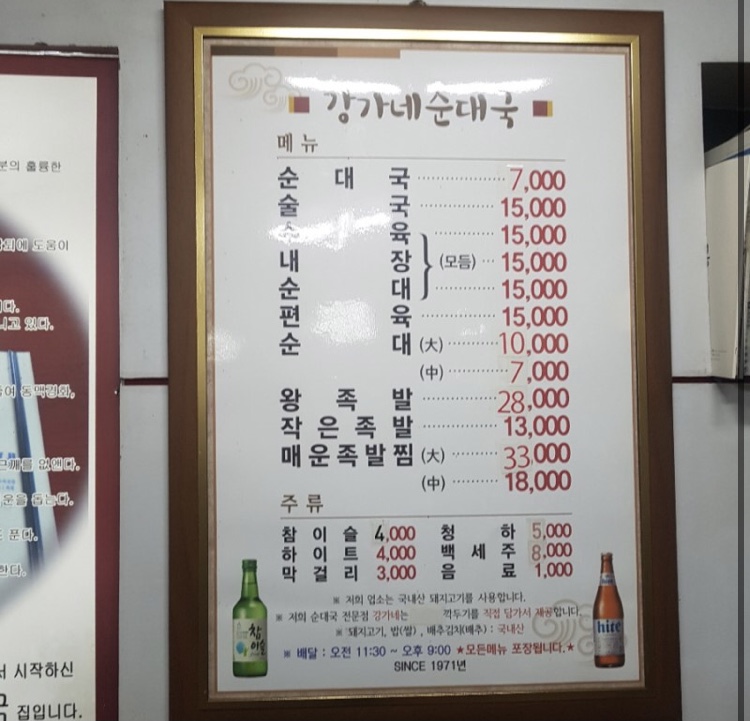 분의 훌륭한
니고 있다.
서 시작하신
집입니다.
강가네순대국
메뉴
순대국 7,000
술국 15,000
육 15,000
내장 (모듬) 15,000
순대 15,000
편육 15,000
순대 (大) 10,000
(中) 7,000
왕족발 28,000
작은족발 13,000
매운족발찜 (大) 33,000
(中) 18,000
주류
참이슬 4,000 청하 5,000
하이트 4,000 백세주 8,000
막걸리 3,000 음료 1,000
※ 저희 업소는 국내산 돼지고기를 사용합니다.
※ 저희 순대국 전문점 강가네는 깍두기를 직접 담가서 제공합니다.
※ 돼지고기, 밥(쌀), 배추김치(배추) : 국내산
※ 배달 : 오전 11:30 ~ 오후 9:00 ★모든메뉴 포장됩니다.★
SINCE 1971년
참이슬
hite